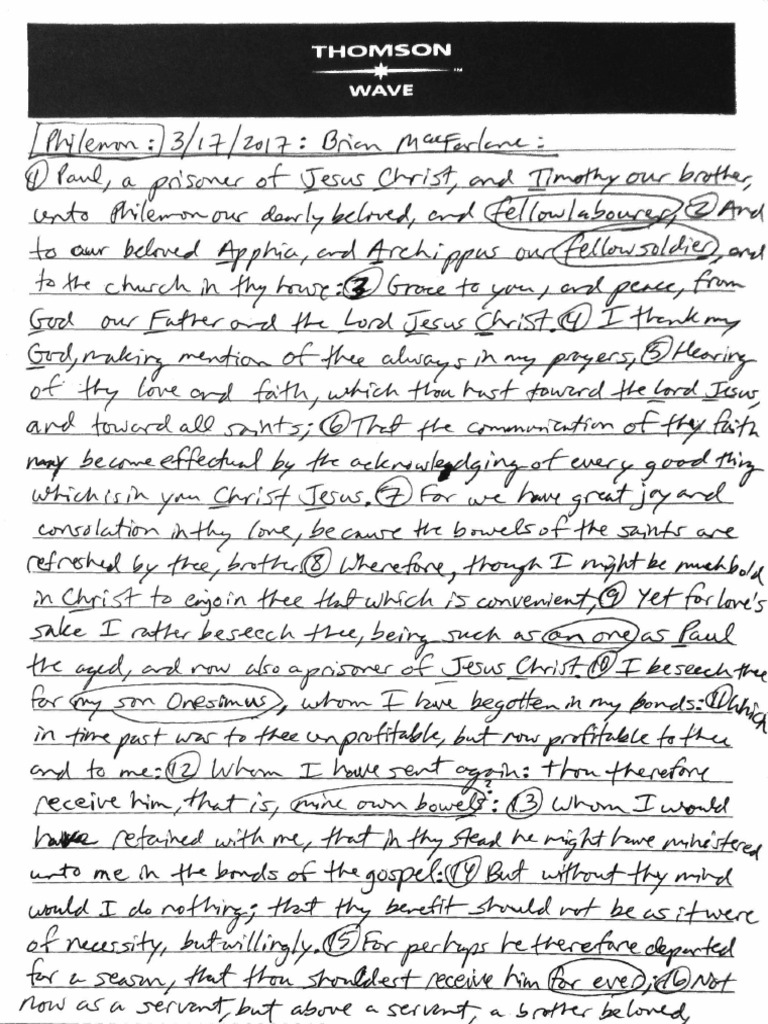 THOMSON
™
WAVE
Philemon: 3/17/2017: Brian MacFarlane:
① Paul, a prisoner of Jesus Christ, and Timothy our brother,
unto Philemon our dearly beloved, and fellowlabourer, ② And
to our beloved Apphia, and Archippus our fellowsoldier, and
to the church in thy house: ③ Grace to you, and peace, from
God our Father and the Lord Jesus Christ. ④ I thank my
God, making mention of thee always in my prayers, ⑤ Hearing
of thy love and faith, which thou hast toward the Lord Jesus,
and toward all saints; ⑥ That the communication of thy faith
may become effectual by the acknowledging of every good thing
which is in you Christ Jesus. ⑦ For we have great joy and
consolation in thy love, because the bowels of the saints are
refreshed by thee, brother. ⑧ Wherefore, though I might be much bold
in Christ to enjoin thee that which is convenient, ⑨ Yet for love's
sake I rather beseech thee, being such as an one as Paul
the aged, and now also a prisoner of Jesus Christ. ⑩ I beseech thee
for my son Onesimus, whom I have begotten in my bonds: ⑪ Which
in time past was to thee unprofitable, but now profitable to thee
and to me: ⑫ Whom I have sent again: thou therefore
receive him, that is, mine own bowels?: ⑬ Whom I would
have retained with me, that in thy stead he might have ministered
unto me in the bonds of the gospel: ⑭ But without thy mind
would I do nothing; that thy benefit should not be as it were
of necessity, but willingly. ⑮ For perhaps he therefore departed
for a season, that thou shouldest receive him for ever; ⑯ Not
now as a servant, but above a servant, a brother beloved,